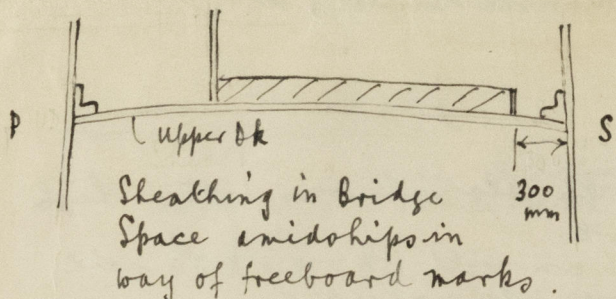 P
S
Upper Dk
300
mm
Sheathing in Bridge
Space amidships in
way of freeboard marks.